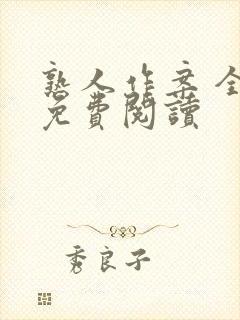 熟人作案全
免費閱讀
秀良子